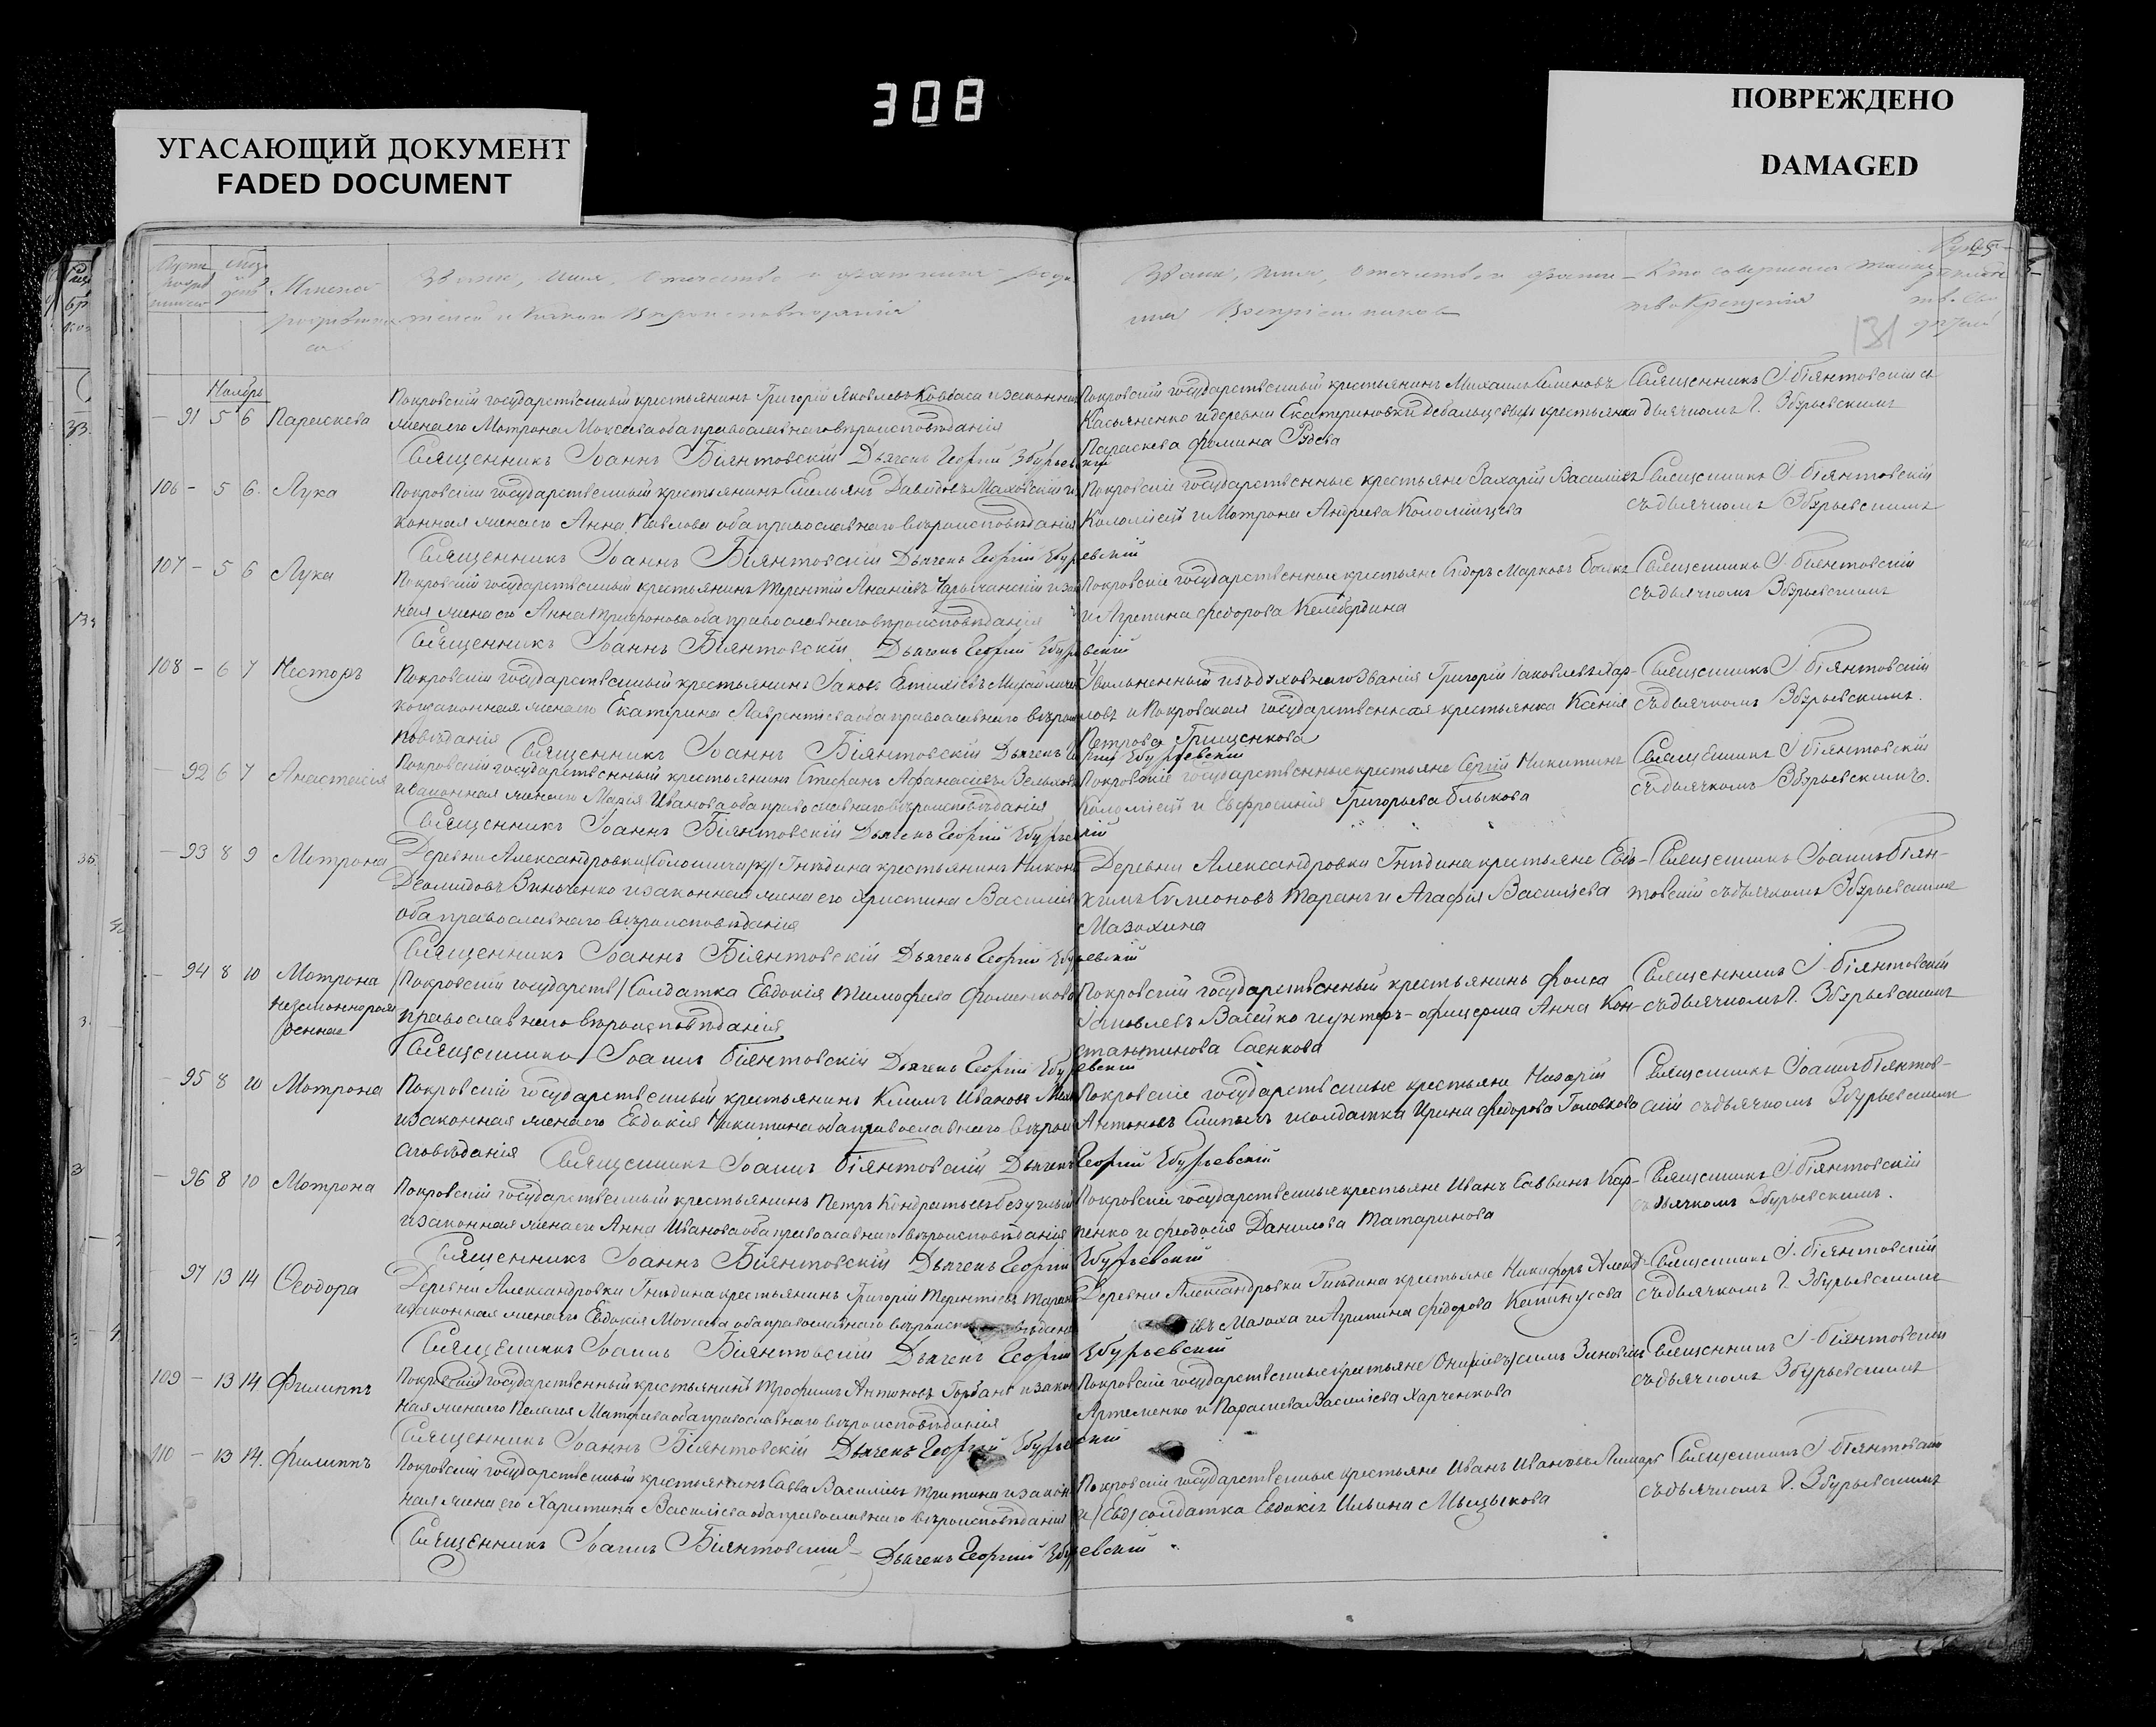 308
УГАСАЮЩИЙ ДОКУМЕНТ
FADED DOCUMENT
ПОВРЕЖДЕНО
DAMAGED
131
Звание, имя, отчество и фамилия роди-
телей и какого вероисповедания
Звание, имя, отчество и фами-
лия восприемников
Кто совершал таин-
тво крещения
Ноябрь
91 5 6 Параскева
Покровскій государственный крестьянинъ Григорій Яковлевъ Ковбаса и законная
жена его Мотрона Моисеева оба православнаго вѣроисповѣданія
Священникъ Іоаннъ Біянтовскій Дьячекъ Георгій Збурьевскій
Покровскій государственный крестьянинъ Михаилъ Семеновъ
Касьяненко и деревни Екатериновки Дебальцевыхъ крестьянка
Параскева Фомина
Священникъ І. Біянтовскій съ
дьячкомъ Г. Збурьевскимъ
106 - 5 6 Лука
Покровскій государственный крестьянинъ Емельянъ Давидовъ Маховскій и за
конная жена его Анна Павлова оба православнаго вѣроисповѣданія
Священникъ Іоаннъ Біянтовскій Дьячекъ Георгій Збурьевскій
Покровскіе государственные крестьяне Захарій Васильевъ
Коломіецъ и Мотрона Андреева Коломійцева
Священникъ І. Біянтовскій
съ дьячкомъ Збурьевскимъ
107 - 5 6 Лука
Покровскій государственный крестьянинъ Терентій Ананіевъ Царычанскій и закон
ная жена его Анна Трифонова оба православнаго вѣроисповѣданія
Священникъ Іоаннъ Біянтовскій Дьячекъ Георгій Збурьевскій
Покровскіе государственные крестьяне Сидоръ Марковъ
и Агрепина Федорова Келебердина
Священникъ І. Біянтовскій
съ дьячкомъ Збурьевскимъ
108 - 6 7 Несторъ
Покровскій государственный крестьянинъ Іаковъ Евтихіевъ Михайличен
ко и законная жена его Екатерина Лаврентіева оба православнаго вѣроис
повѣданія Священникъ Іоаннъ Біянтовскій Дьячекъ Георгій Збурьевскій
Увольненный изъ духовнаго званія Григорій Іаковлевъ Хар-
ловъ и Покровская государственная крестьянка Ксенія
Петрова Грищенкова
Священникъ І. Біянтовскій
съ дьячкомъ Збурьевскимъ.
92 6 7 Анастасія
Покровскій государственный крестьянинъ Стефанъ Афанасіевъ
и законная жена его Марія Иванова оба православнаго вѣроисповѣданія
Священникъ Іоаннъ Біянтовскій Дьячекъ Георгій Збурьевскій
Покровскіе государственные крестьяне Сергій Никитинъ
Коломіецъ и Евфросинія Григорьева Быкова
Священникъ І. Біянтовскій
съ дьячкомъ Збурьевскимъ.
93 8 9 Мотрона
Деревни Александровки Гнѣдина крестьянинъ Никонъ
Деомидовъ Винченко и законная жена его Христина Василіева
оба православнаго вѣроисповѣданія
Священникъ Іоаннъ Біянтовскій Дьячекъ Георгій Збурьевскій
Деревни Александровки Гнѣдина крестьяне Евѳ-
химъ Симоновъ Таранъ и Агафія Васильева
Мазохина
Священникъ Іоаннъ Біян-
товскій съ дьячкомъ Збурьевскимъ
94 8 10 Мотрона
незаконнорож
денная
(Покровскій государств) Солдатка Евдокія Тимофеева Фоменкова
православнаго вѣроисповѣданія
Священникъ Іоаннъ Біянтовскій Дьячекъ Георгій Збурьевскій
Покровскій государственный крестьянинъ Фома
Іаковлевъ Васейко и унтеръ-офицерша Анна Кон-
стантинова Саенкова
Священникъ І. Біянтовскій
съ дьячкомъ Г. Збурьевскимъ
95 8 10 Мотрона
Покровскій государственный крестьянинъ Климъ Ивановъ
и законная жена его Евдокія Никитина оба православнаго вѣрои
сповѣданія Священникъ Іоаннъ Біянтовскій Дьячекъ Георгій Збурьевскій
Покровскіе государственные крестьяне Назарій
Антоновъ и солдатка Ирина Федорова Головкова
Священникъ Іоаннъ Біянтов-
скій съ дьячкомъ Збурьевскимъ
96 8 10 Мотрона
Покровскій государственный крестьянинъ Петръ Кондратьевъ Безуглый
и законная жена его Анна Иванова оба православнаго вѣроисповѣданія
Священникъ Іоаннъ Біянтовскій Дьячекъ Георгій Збурьевскій
Покровскіе государственные крестьяне Иванъ Саввинъ Кар-
пенко и Феодосія Данилова Татаринова
Священникъ І. Біянтовскій
съ дьячкомъ Збурьевскимъ.
97 13 14 Ѳеодора
Деревни Александровки Гнѣдина крестьянинъ Григорій Терентіевъ Таранъ
и законная жена его Евдокія Моисеева оба православнаго вѣроисповѣданія
Священникъ Іоаннъ Біянтовскій Дьячекъ Георгій Збурьевскій
Деревни Александровки Гнѣдина крестьяне Никифоръ
Мазоха и Агрипина Федорова
Священникъ І. Біянтовскій
съ дьячкомъ Г. Збурьевскимъ
109 - 13 14 Филиппъ
Покровскій государственный крестьянинъ Трофимъ Антоновъ Горбань и закон
ная жена его Пелагія Матфеева оба православнаго вѣроисповѣданія
Священникъ Іоаннъ Біянтовскій Дьячекъ Георгій Збурьевскій
Покровскіе государственные крестьяне Зиновьевъ
Артеменко и Параскева Василіева Харченкова
Священникъ І. Біянтовскій
съ дьячкомъ Збурьевскимъ
110 - 13 14. Филиппъ
Покровскій государственный крестьянинъ Савва Василіевъ и закон
ная жена его Харитина Василіева оба православнаго вѣроисповѣданія
Священникъ Іоаннъ Біянтовскій Дьячекъ Георгій Збурьевскій
Покровскіе государственные крестьяне Иванъ Ивановъ Лимарь
и (Евд) солдатка Евдокія Ильина Мызыкова
Священникъ І. Біянтовскій
съ дьячкомъ Г. Збурьевскимъ